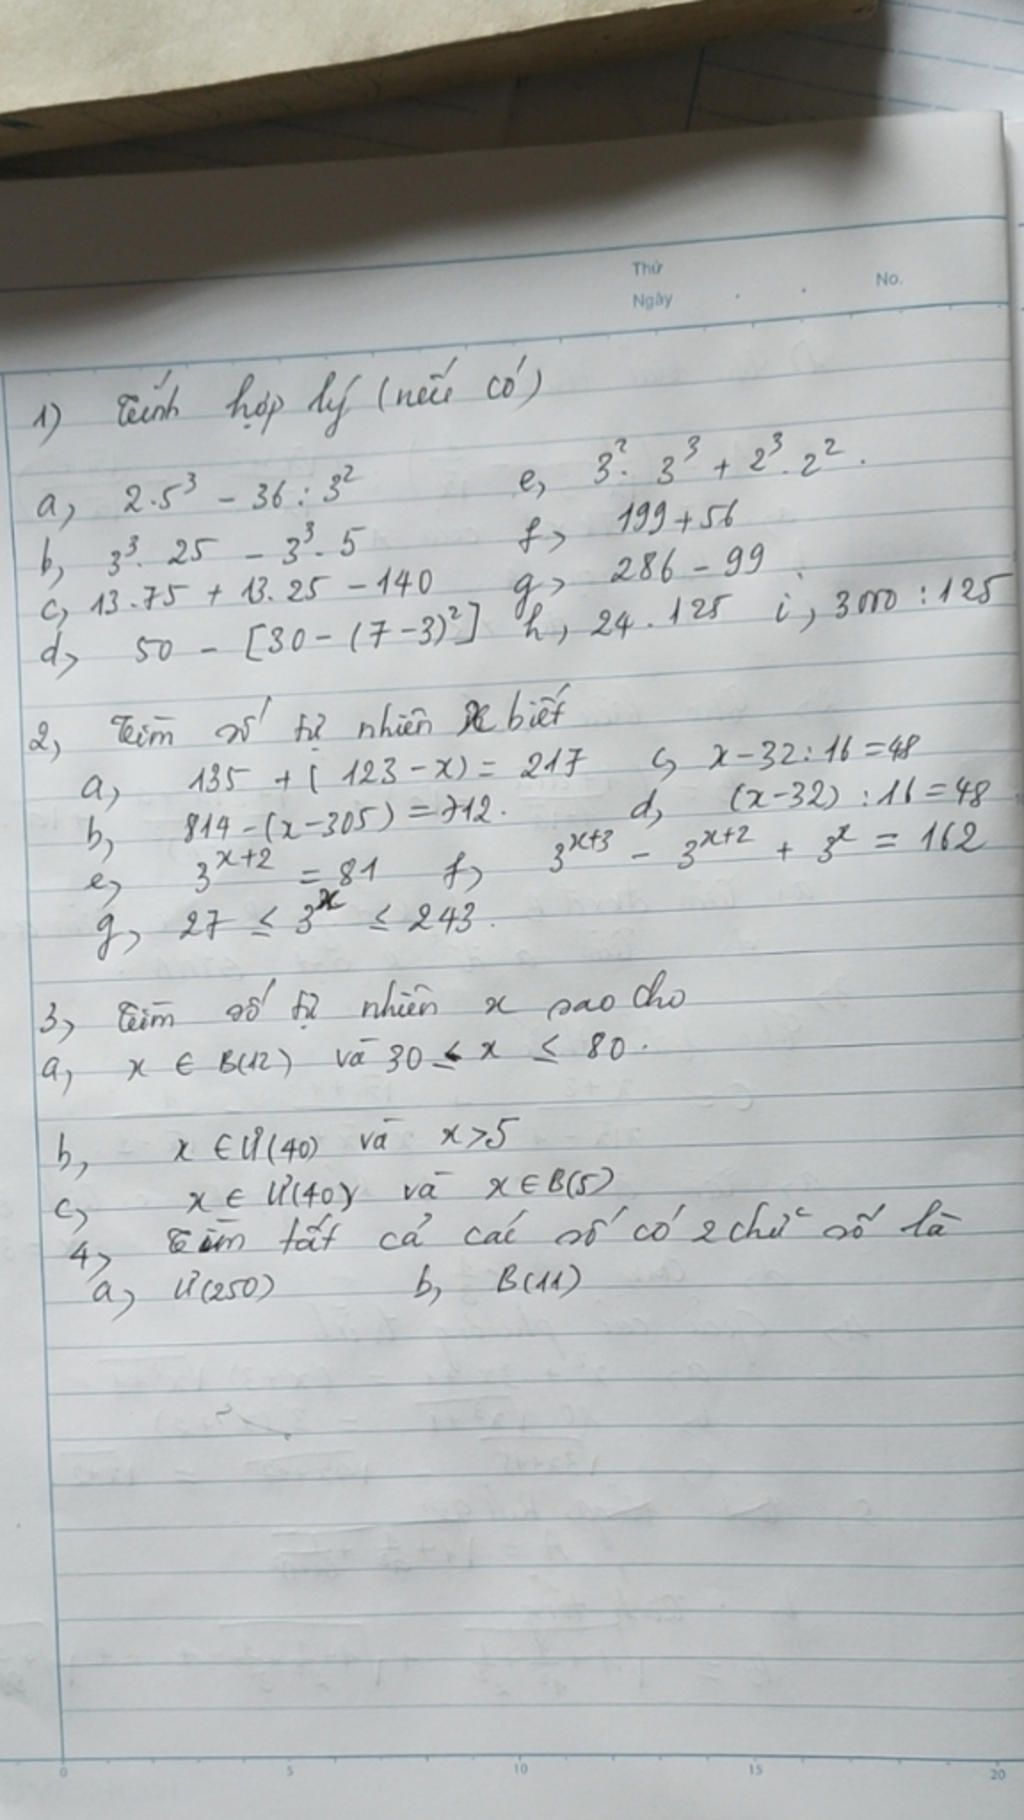 Thứ
Ngày . . No.
1) Tính hợp lý (nếu có)
a, 2.5³ - 36 : 3² e, 3². 3³ + 2³. 2².
b, 3³. 25 - 3³. 5 f, 199 + 56
c, 13.75 + 13.25 - 140 g, 286 - 99
d, 50 - [30 - (7 - 3)²] h, 24 . 125 i, 3000 : 125
2, Tìm số tự nhiên x biết
a, 135 + ( 123 - x) = 217 c, x - 32 : 16 = 48
b, 814 - (x - 305) = 712. d, (x - 32) : 16 = 48
e, 3ˣ⁺² = 81 f, 3ˣ⁺³ - 3ˣ⁺² + 3ˣ = 162
g, 27 ≤ 3ˣ ≤ 243.
3, Tìm số tự nhiên x sao cho
a, x ∈ B(12) và 30 ≤ x ≤ 80.
b, x ∈ Ư(40) và x > 5
c, x ∈ Ư(40) và x ∈ B(5)
4, Tìm tất cả các số có 2 chữ số là
a, Ư(250) b, B(11)
0 5 10 15 20